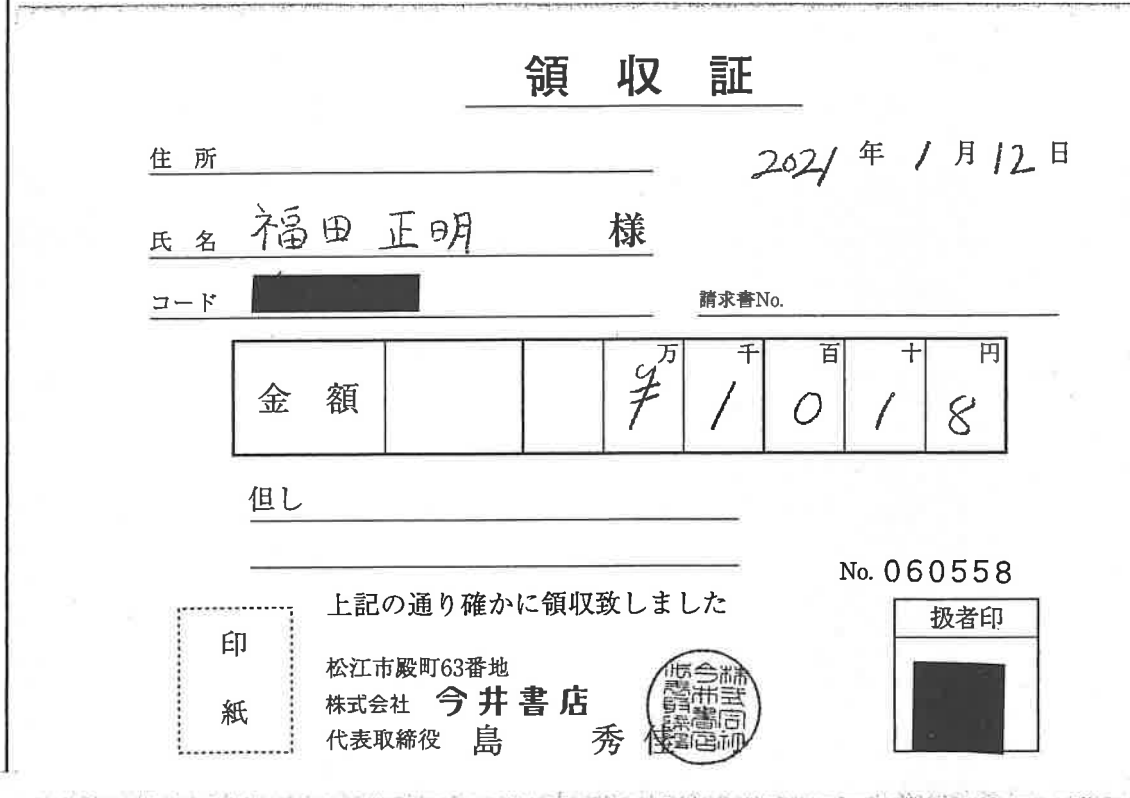 領収証
住所
2021年1月12日
氏名 福田 正明 様
コード
請求書No.
金額 万 千 百 十 円
¥ 1 0 1 8
但し
No. 060558
上記の通り確かに領収致しました
扱者印
印紙
松江市殿町63番地
株式会社 今井書店
代表取締役 島 秀佳